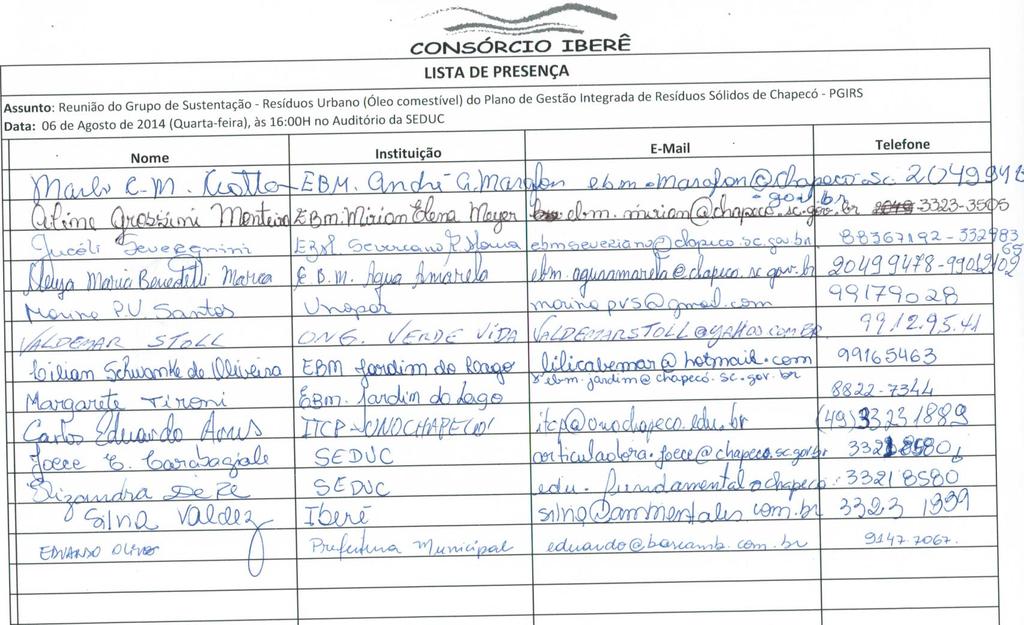 CONSÓRCIO IBERÊ
LISTA DE PRESENÇA
Assunto: Reunião do Grupo de Sustentação - Resíduos Urbano (Óleo comestível) do Plano de Gestão Integrada de Resíduos Sólidos de Chapecó - PGIRS
Data: 06 de Agosto de 2014 (Quarta-feira), às 16:00H no Auditório da SEDUC
Nome Instituição E-Mail Telefone
EBM. André A. Marafon ebm.marafon@chapeco.sc. 2049941
gov.br
Monteiro EBM. Mirian Elena Meyer ebm.mirian@chapeco.sc.gov.br 3323-3505
Severgnini EBM. Severiano ebmseveriano@chapeco.sc.gov.br 88367192-332983
65
Neusa Maria Benedetti E.B.M. Água Amarela ebm.aguaamarela@chapeco.sc.gov.br 20499478-
P.V. Santos Unopar marinapvs@gmail.com 99179028
VALDEMAR STOLL ONG. VERDE VIDA VALDEMARSTOLL@YAHOO.COM.BR 9912.95.41
Lilian Schwamke de Oliveira EBM Jardim do Lago lilicabemar@hotmail.com 99165463
ebm.jardim@chapecó.sc.gov.br
Margarete Tironi EBM. Jardim do Lago 8822-7344
Carlos Eduardo Arns ITCP-UNOCHAPECÓ itcp@unochapeco.edu.br (49)33231889
Joece SEDUC articuladora.joece@chapeco.sc.gov.br 3321 8580
Elizandra SEDUC edu.fundamental@chapeco. 33218580
Silna Valdez Iberê silna@ammentales.com.br 3323 1999
EDUARDO Prefeitura Municipal eduardo@barcamb.com.br 9147.7067.